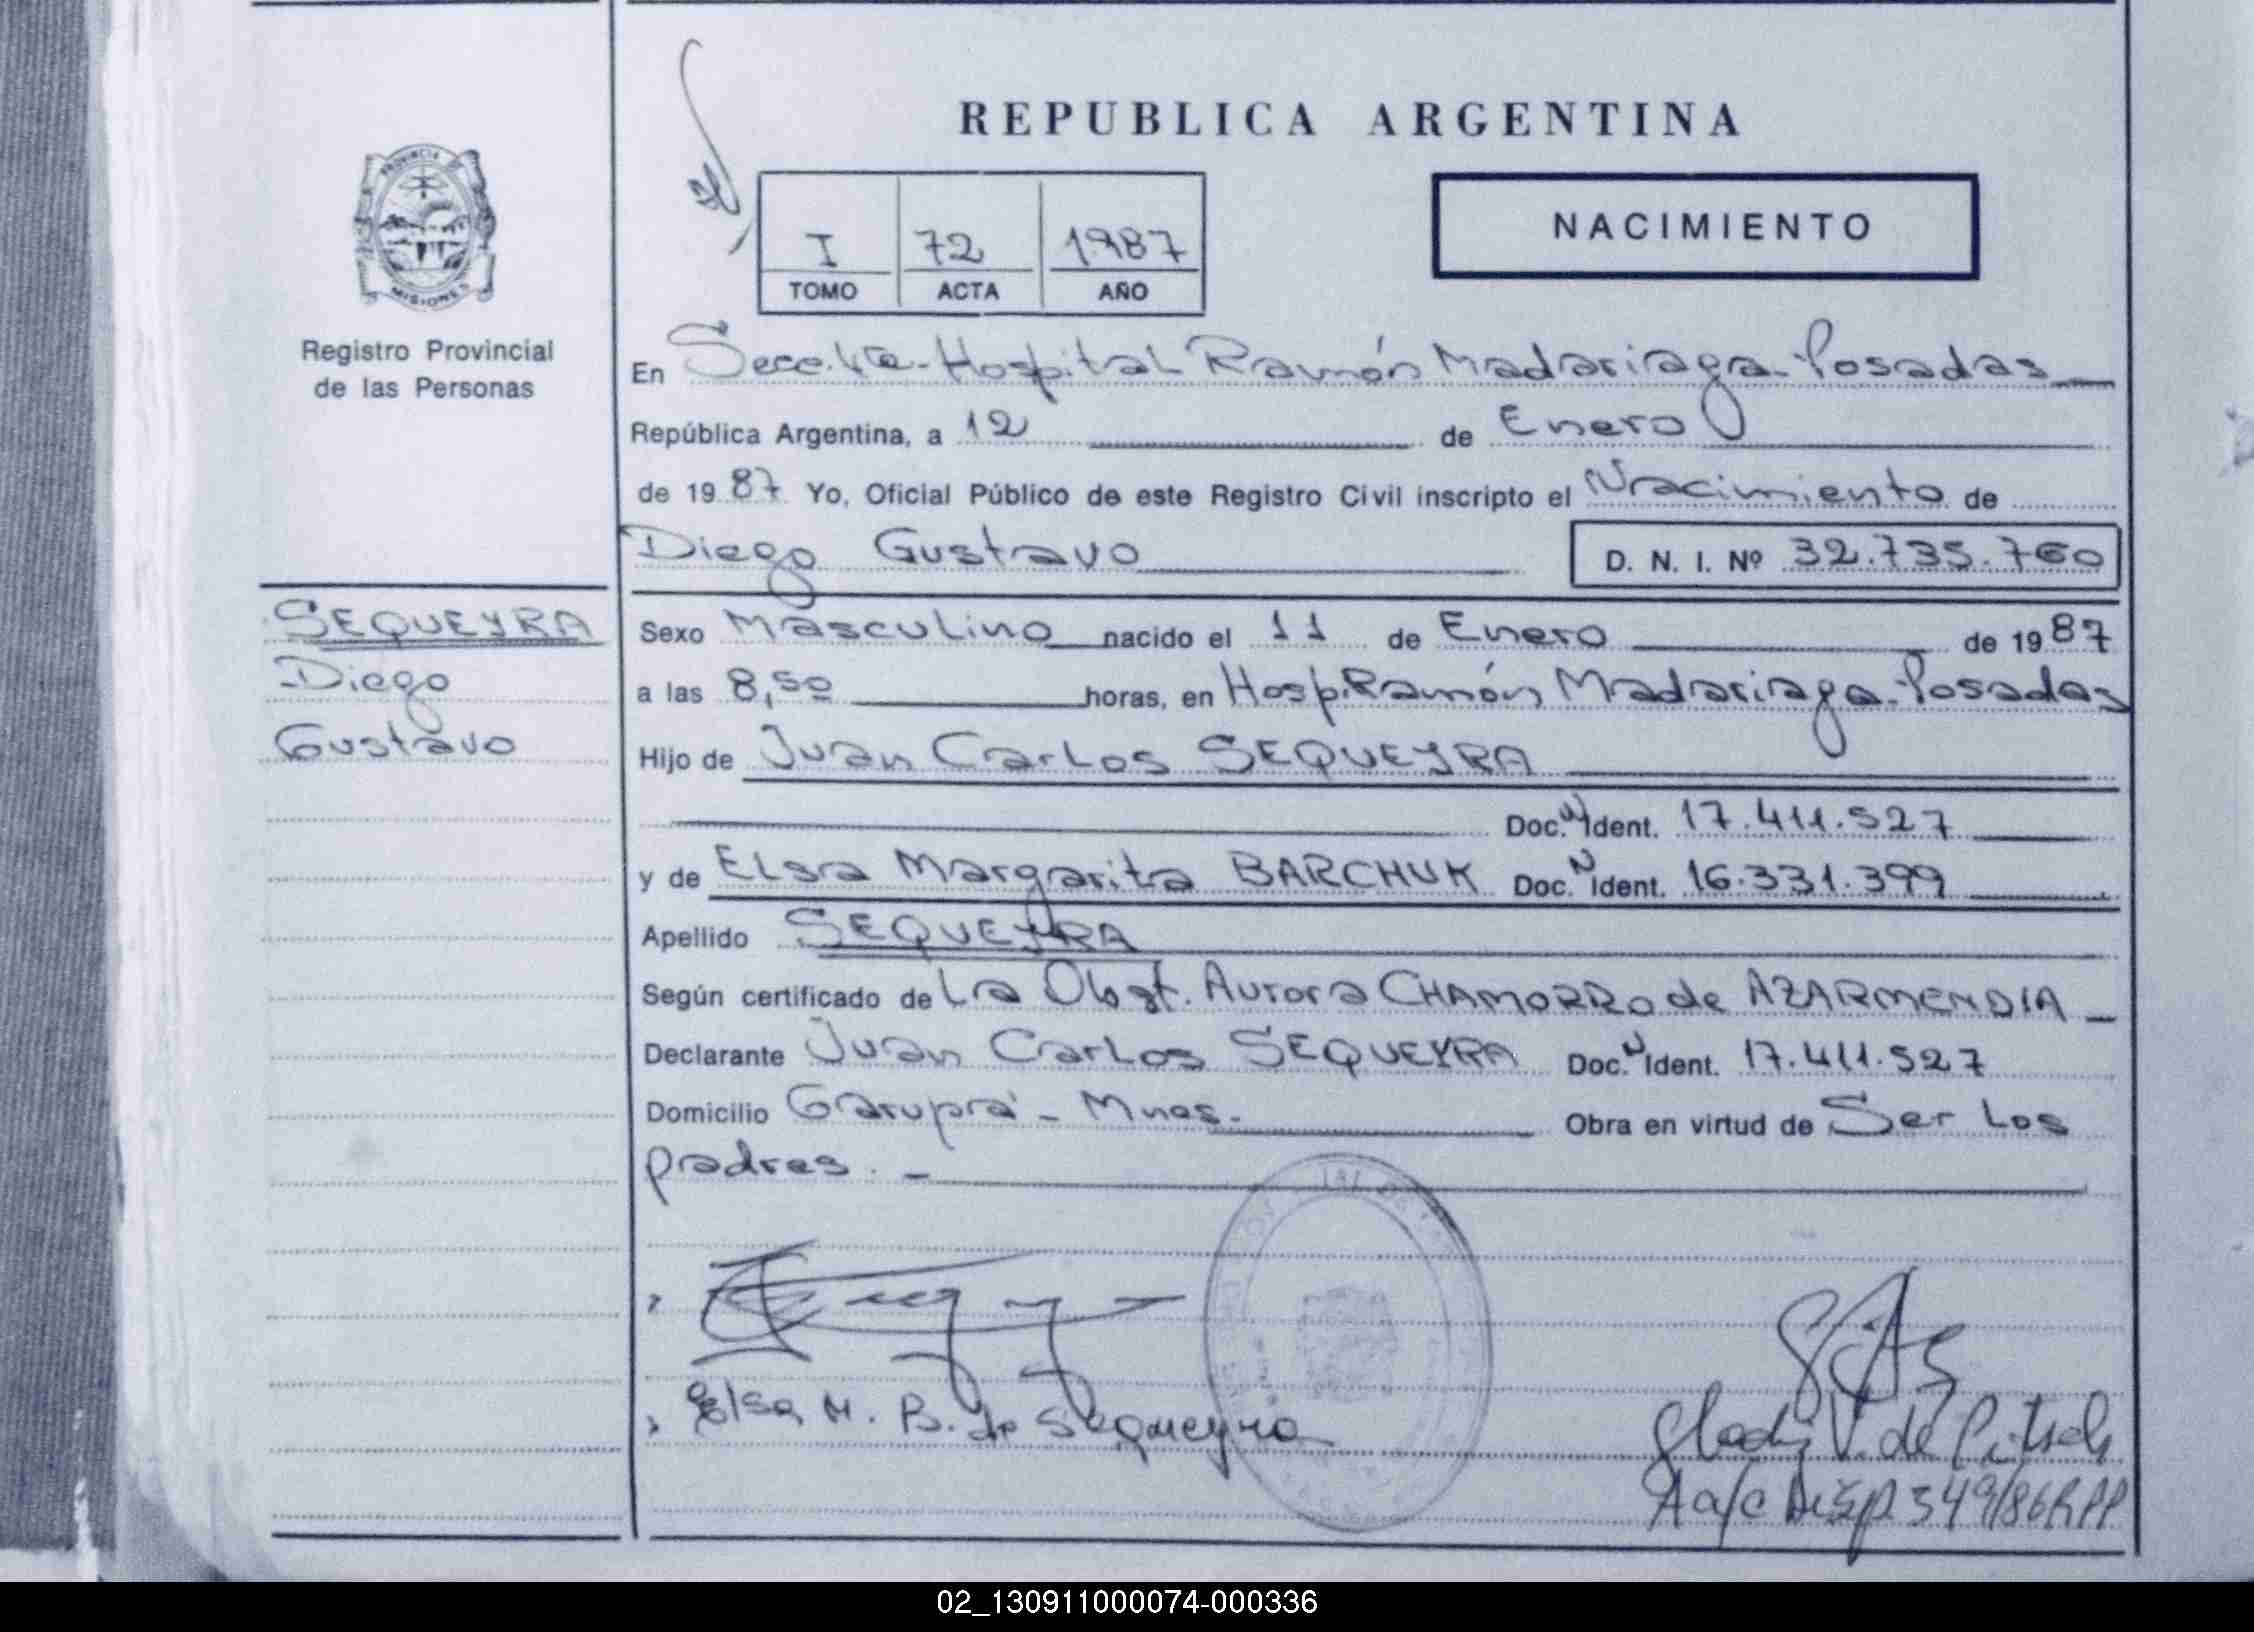 REPUBLICA ARGENTINA
PROVINCIA
MISIONES
Registro Provincial
de las Personas
I 72 1987
TOMO ACTA AÑO
NACIMIENTO
En Secc. 4ta - Hospital Ramón Madariaga - Posadas
República Argentina, a 12 de Enero
de 1987 Yo, Oficial Público de este Registro Civil inscripto el Nacimiento de
Diego Gustavo D. N. I. Nº 32.735.760
SEQUEYRA
Diego
Gustavo
Sexo Masculino nacido el 11 de Enero de 1987
a las 8,50 horas, en Hosp. Ramón Madariaga - Posadas
Hijo de Juan Carlos SEQUEYRA
Doc. N Ident. 17.411.527
y de Elsa Margarita BARCHUK Doc. N Ident. 16.331.399
Apellido SEQUEYRA
Según certificado de La Obst. Aurora CHAMORRO de AZARMENDIA
Declarante Juan Carlos SEQUEYRA Doc. N Ident. 17.411.527
Domicilio Garupá - Mnes. - Obra en virtud de Ser los
padres. -
Elsa M. B. de Sequeyra
V. de
A a/c Disp 349/86 RPP
02_130911000074-000336